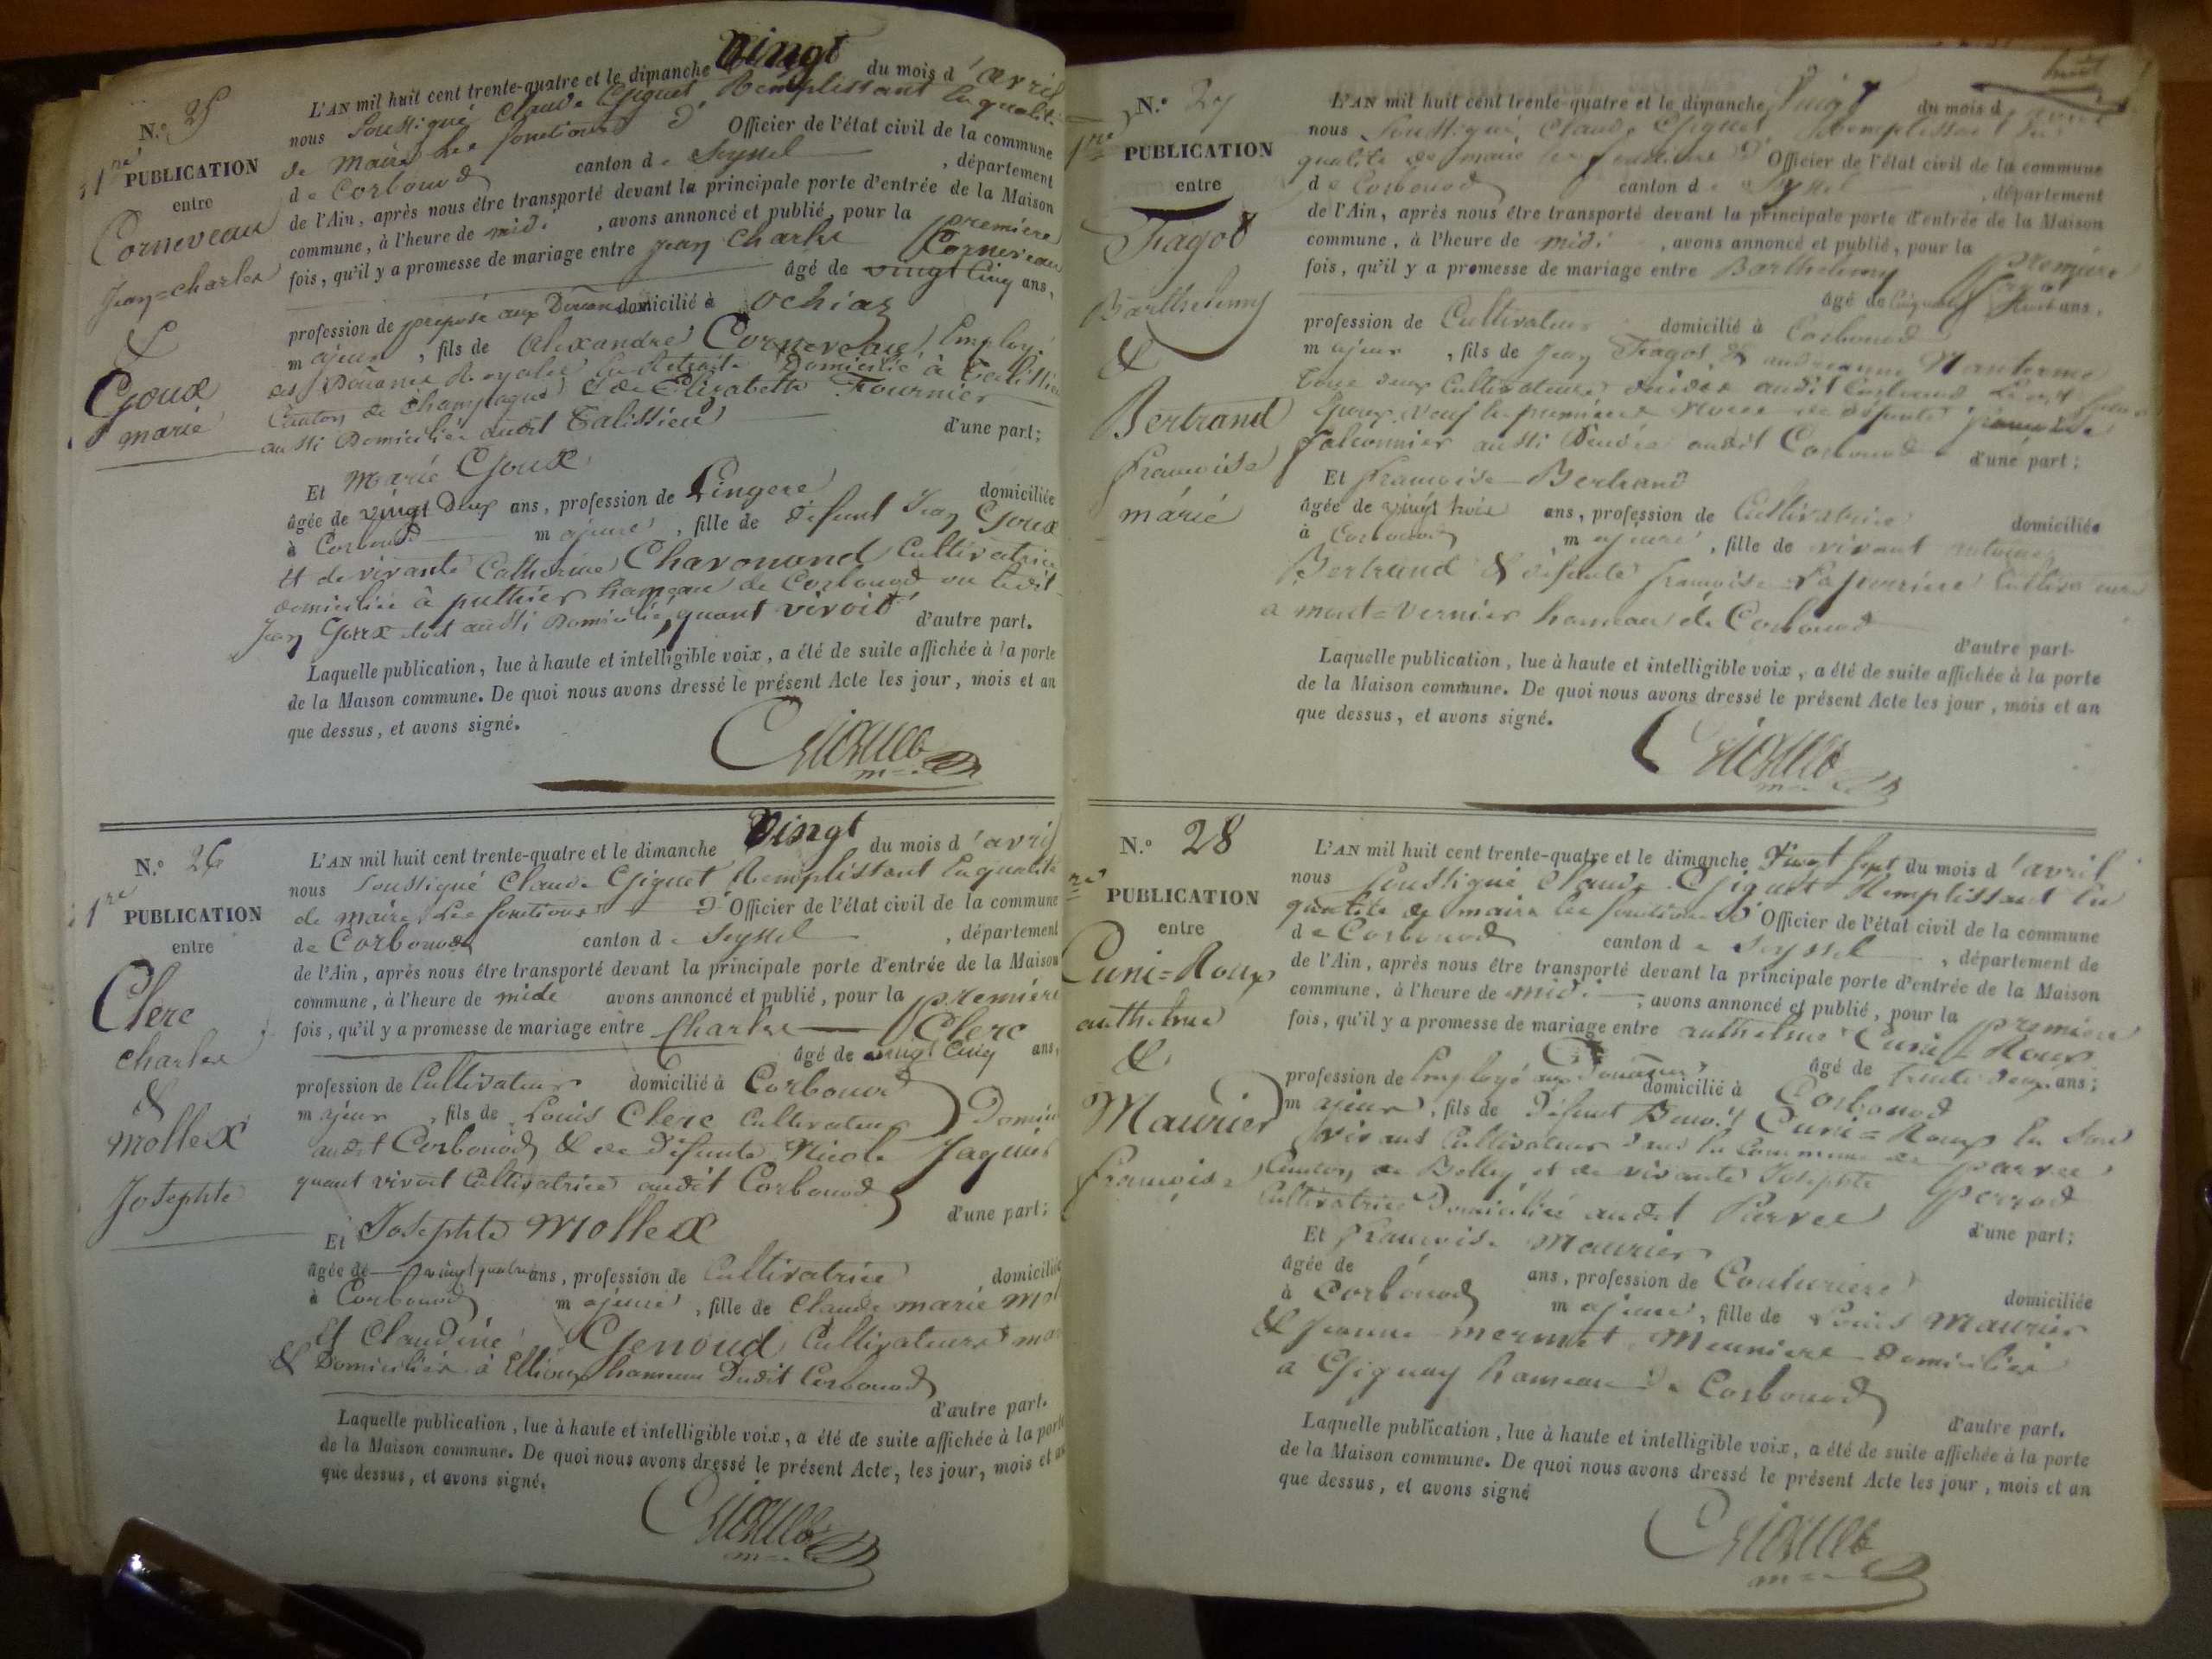 N.° 25
1re PUBLICATION
entre
Corneveau
Jean=charles
&
Goux
marie
L'AN mil huit cent trente-quatre et le dimanche vingt du mois d'avril
nous soussigné Claude Giguet Remplissant la qualité
de maire les fonctions d' Officier de l'état civil de la commune
de Corbonod canton de Seyssel , département
de l'Ain, après nous être transporté devant la principale porte d'entrée de la Maison
commune, à l'heure de midi , avons annoncé et publié, pour la première
fois, qu'il y a promesse de mariage entre Jean Charles Corneveau
âgé de vingt cinq ans,
profession de préposé aux Douanes domicilié à Ochiaz
majeur , fils de Alexandre Corneveau Employé
des Douanes Royales en Retraite Domicilié à Talissieu
Canton de Champagne & de Elizabeth Fournier
aussi Domiciliée audit Talissieu d'une part;
Et Marie Goux
âgée de vingt Deux ans, profession de Lingere domiciliée
à Corbonod majeure , fille de Défunt Jean Goux
Et de vivante Catherine Charonand Cultivatrice
domiciliée à puthier hameau de Corbonod ou ledit
Jean Goux etoit aussi Domicilié, quant vivoit d'autre part.
Laquelle publication, lue à haute et intelligible voix, a été de suite affichée à la porte
de la Maison commune. De quoi nous avons dressé le présent Acte les jour, mois et an
que dessus, et avons signé.
Giguet
N.° 26
1re PUBLICATION
entre
Clerc
charles
&
Mollex
Josephte
L'AN mil huit cent trente-quatre et le dimanche vingt du mois d'avril
nous soussigné Claude Giguet Remplissant la qualité
de maire les fonctions d' Officier de l'état civil de la commune
de Corbonod canton de Seyssel , département
de l'Ain, après nous être transporté devant la principale porte d'entrée de la Maison
commune, à l'heure de midi avons annoncé et publié, pour la première
fois, qu'il y a promesse de mariage entre Charles Clerc
âgé de vingt cinq ans,
profession de Cultivateur domicilié à Corbonod
majeur , fils de Louis Clerc Cultivateur
audit Corbonod & de Défunte Nicole Jaquier
quant vivoit Cultivatrice audit Corbonod d'une part;
Et Josephte Mollex
âgée de vingt quatre ans, profession de Cultivatrice domiciliée
à Corbonod majeure , fille de Claude marie Mol
Et Claudine Genoud Cultivateurs
& Domiciliés à Ellioux hameau Dudit Corbonod
d'autre part.
Laquelle publication, lue à haute et intelligible voix, a été de suite affichée à la porte
de la Maison commune. De quoi nous avons dressé le présent Acte, les jour, mois et an
que dessus, et avons signé.
Giguet
huit
N.° 27
1re PUBLICATION
entre
Fagot
Barthelemy
&
Bertrand
françoise
marie
L'AN mil huit cent trente-quatre et le dimanche vingt du mois d'avril
nous Soussigné Claude Giguet Remplissant la
qualité de maire les fonctions d' Officier de l'état civil de la commune
de Corbonod canton de Seyssel , département
de l'Ain, après nous être transporté devant la principale porte d'entrée de la Maison
commune, à l'heure de midi , avons annoncé et publié, pour la première
fois, qu'il y a promesse de mariage entre Barthelemy Fagot
âgé de cinquante huit ans,
profession de Cultivateur domicilié à Corbonod
majeur , fils de Jean Fagot & Nanterme
tous deux Cultivateurs décédés audit Corbonod
veuf en premiere Noces de Défunte
Falconnier aussi Décédée audit Corbonod d'une part;
Et françoise Bertrand
âgée de vingt trois ans, profession de Cultivatrice domiciliée
à Corbonod majeure , fille de vivant antoine
Bertrand & défunte françoise Laperriere Cultivateurs
a mont=Vernier hameau de Corbonod
d'autre part
Laquelle publication, lue à haute et intelligible voix, a été de suite affichée à la porte
de la Maison commune. De quoi nous avons dressé le présent Acte les jour, mois et an
que dessus, et avons signé.
Giguet
N.° 28
re PUBLICATION
entre
Cuni=Roux
anthelme
&
Maurier
françoise
L'AN mil huit cent trente-quatre et le dimanche vingt sept du mois d'avril
nous soussigné Claude Giguet Remplissant la
qualité de maire les fonctions d' Officier de l'état civil de la commune
de Corbonod canton de Seyssel , département de
de l'Ain, après nous être transporté devant la principale porte d'entrée de la Maison
commune, à l'heure de midi , avons annoncé et publié, pour la première
fois, qu'il y a promesse de mariage entre anthelme Cuni=Roux
âgé de trente deux ans;
profession de Employé aux Douanes domicilié à Corbonod
majeur , fils de Défunt Benoit Cuni=Roux en son
vivant Cultivateur dans la Commune de parves
Canton de Belley et de vivante Josephte perrod
Cultivatrice Domiciliée audit Parves d'une part;
Et françoise Maurier
âgée de ans, profession de Couturiere domiciliée
à Corbonod majeure , fille de Louis Maurier
& Jeanne mermet Meuniers domiciliés
a Gignay hameau de Corbonod
d'autre part.
Laquelle publication, lue à haute et intelligible voix, a été de suite affichée à la porte
de la Maison commune. De quoi nous avons dressé le présent Acte les jour, mois et an
que dessus, et avons signé
Giguet